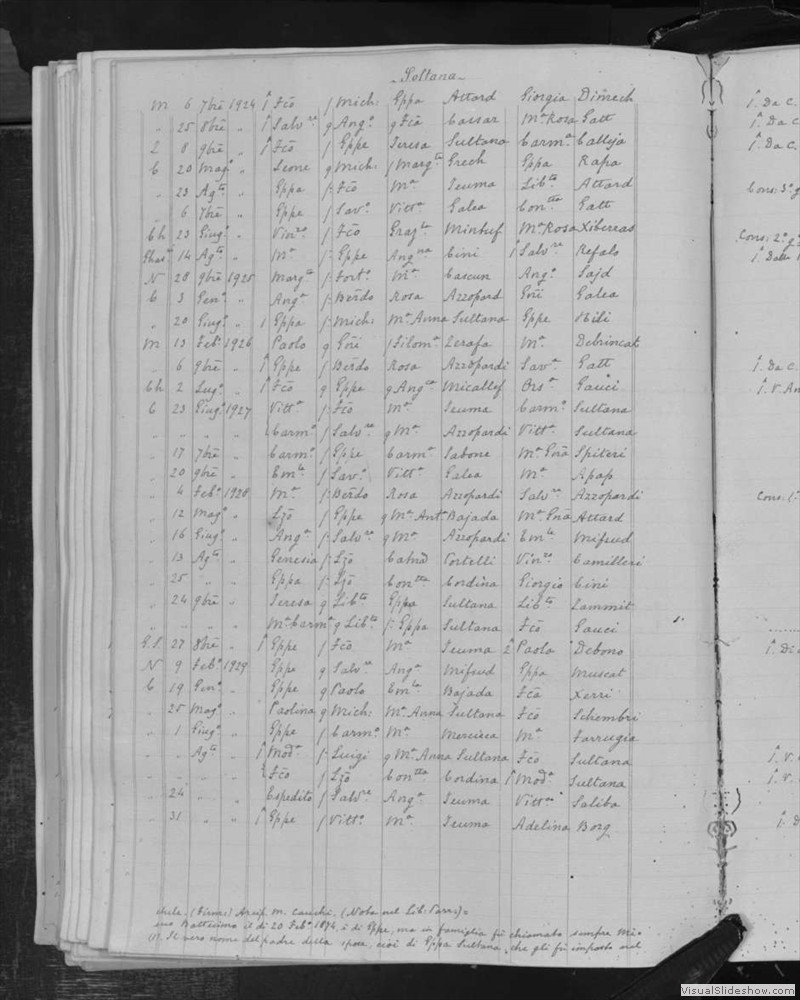 Soltana
M 6 7bre 1924 1º Fco f Mich: Eppa Attard Giorgia Dimech
" 25 8bre " 1º Salvre g Angº g Fca Cassar Mª Rosa Gatt
Z 8 9bre " 1º Fco f Eppe Teresa Sultana Carmª Calleja
C 20 Magº " Leone g Mich: f Margta Grech Eppa Rapa
" 23 Agto " Eppa f: Fco Mª Teuma Libto Attard
" 6 7bre " Eppe f Savº Vittª Galea Contta Gatt
Ch 23 Giugº " Vinzo f: Fco Grazta Mintuf Mª Rosa Xibereas
Ghas 14 Agto " Mª f: Eppe Angna Cini 1º Salvre Refalo
N 28 9bre 1925 Margta f: Fortº Mª Cascun Angº Sajd
C 3 Genº " Angª f: Berdo Rosa Azzopard Gori Galea
" 20 Giugº " 1 Eppa f: Mich: Mª Anna Sultana Eppe Hili
M 13 Febº 1926 Paolo g Gori f Filomª Zerafa Mª Debrincat
" 6 9bre " 1º Eppe f Berdo Rosa Azzopardi Savª Gatt
Ch 2 Lugº " 1º Fco g Eppe g Angta Micallef Orsª Gauci
C 23 Giugº 1927 Vittª f: Fco Mª Teuma Carmº Sultana
" " " " Carmª f Salvre g Mª Azzopardi Vittº Sultana
" 17 7bre " Carmª f Eppe Carmª Sabone Mª Gora Spiteri
" 20 9bre " Emla f Savº Vittª Galea Mª Apap
" 4 Febº 1928 Mª f: Berdo Rosa Azzopardi Salvre Azzopardi
" 12 Magº " Lzo f Eppe g Mª Antª Bajada Mª Gora Attard
" 16 Giugº " Angª f: Salvre g Mª Azzopardi Emle Mifsud
" 13 Agto " Genesia f: Lzo Catna Portelli Vinzo Camilleri
" 25 " " Eppa f: Lzo Contta Cordina Giorgio Cini
" 24 9bre " Teresa g Libto Eppa Sultana Libto Zammit
" " " " Mª Carmª g Libto f: Eppa Sultana Fco Gauci
G.S. 27 8bre " 1º Eppe f Fco Mª Teuma 2ª Paola Debono
N 9 Febº 1929 Eppe g Salvre Angª Mifsud Eppa Muscat
C 19 Genº " Eppe g Paolo Emla Bajada Fca Xerri
" 25 Magº " Paolina g Mich: Mª Anna Sultana Fco Schembri
" 1 Giugº " Eppe f Carmº Mª Mercieca Mª Farrugia
" " Agto " 1º Modº f: Luigi g Mª Anna Sultana Fca Sultana
" " " " Fco f Lzo Contta Cordina 1º Modª Sultana
" 24 " " Espedito f Salvre Angª Teuma Vittª Saliba
" 31 " " 1º Eppe f Vittº Mª Teuma Adelina Borg
(Firm:) Arcip. M. Cauchi. (Nota nel Lib. Parr.)=
suo Battesimo il di 20 Febº 1874, è di Eppe, ma in famiglia fù chiamato sempre Mic=
(1). Il vero nome del padre della sposa, cioè di Eppa Sultana, che gli fù imposto nel
1º. Da C.
1º. Da C.
1º. Da C.
Cons: 3º g
Cons: 2º g
1º. Da C.
1º. V. An
Cons:
1º. V.
1º. V.
VisualSlideshow.com